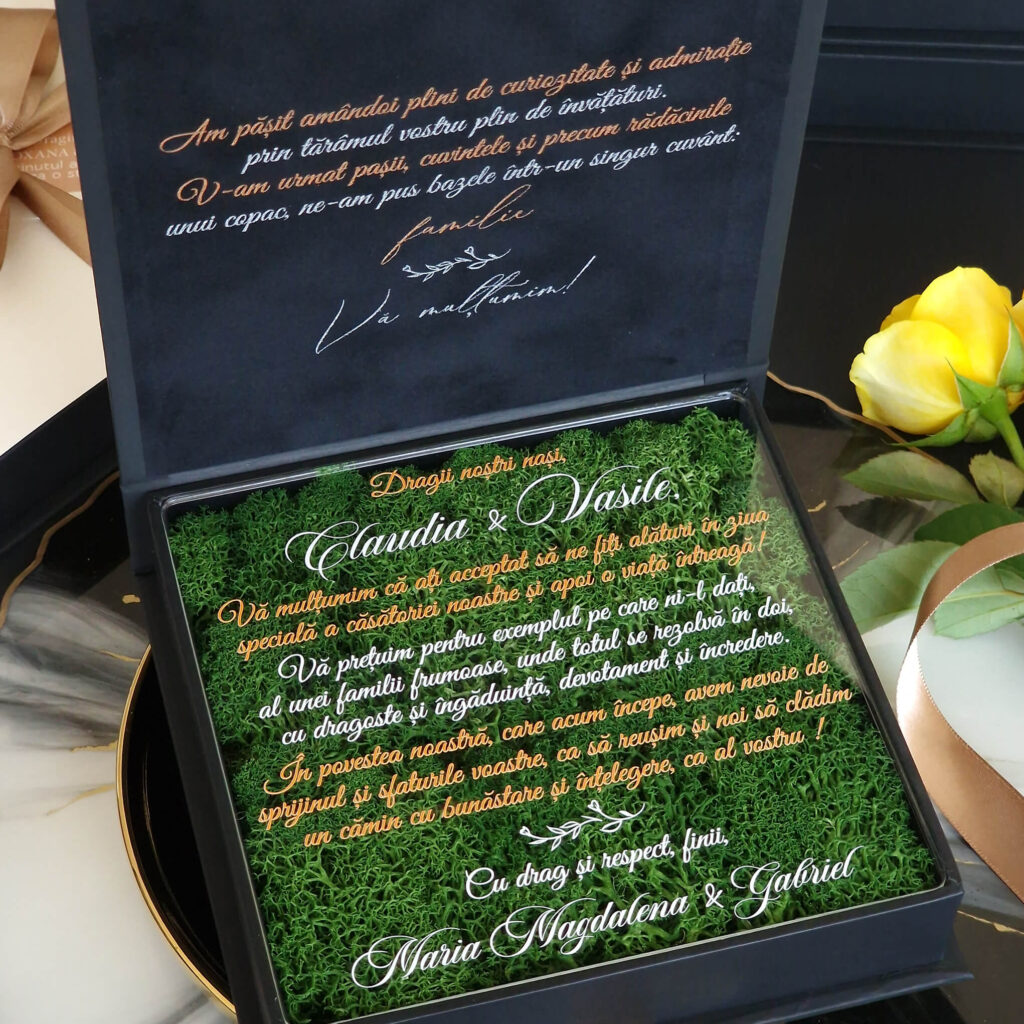 Am pășit amândoi plini de curiozitate și admirație
prin tărâmul vostru plin de învățături.
V-am urmat pașii, cuvintele și precum rădăcinile
unui copac, ne-am pus bazele într-un singur cuvânt:
familie
Vă mulțumim!
Dragii noștri nași,
Claudia & Vasile.
Vă mulțumim că ați acceptat să ne fiți alături în ziua
specială a căsătoriei noastre și apoi o viață întreagă!
Vă prețuim pentru exemplul pe care ni-l dați,
al unei familii frumoase, unde totul se rezolvă în doi,
cu dragoste și îngăduință, devotament și încredere.
În povestea noastră, care acum începe, avem nevoie de
sprijinul și sfaturile voastre, ca să reușim și noi să clădim
un cămin cu bunăstare și înțelegere, ca al vostru !
Cu drag și respect, finii,
Maria Magdalena & Gabriel